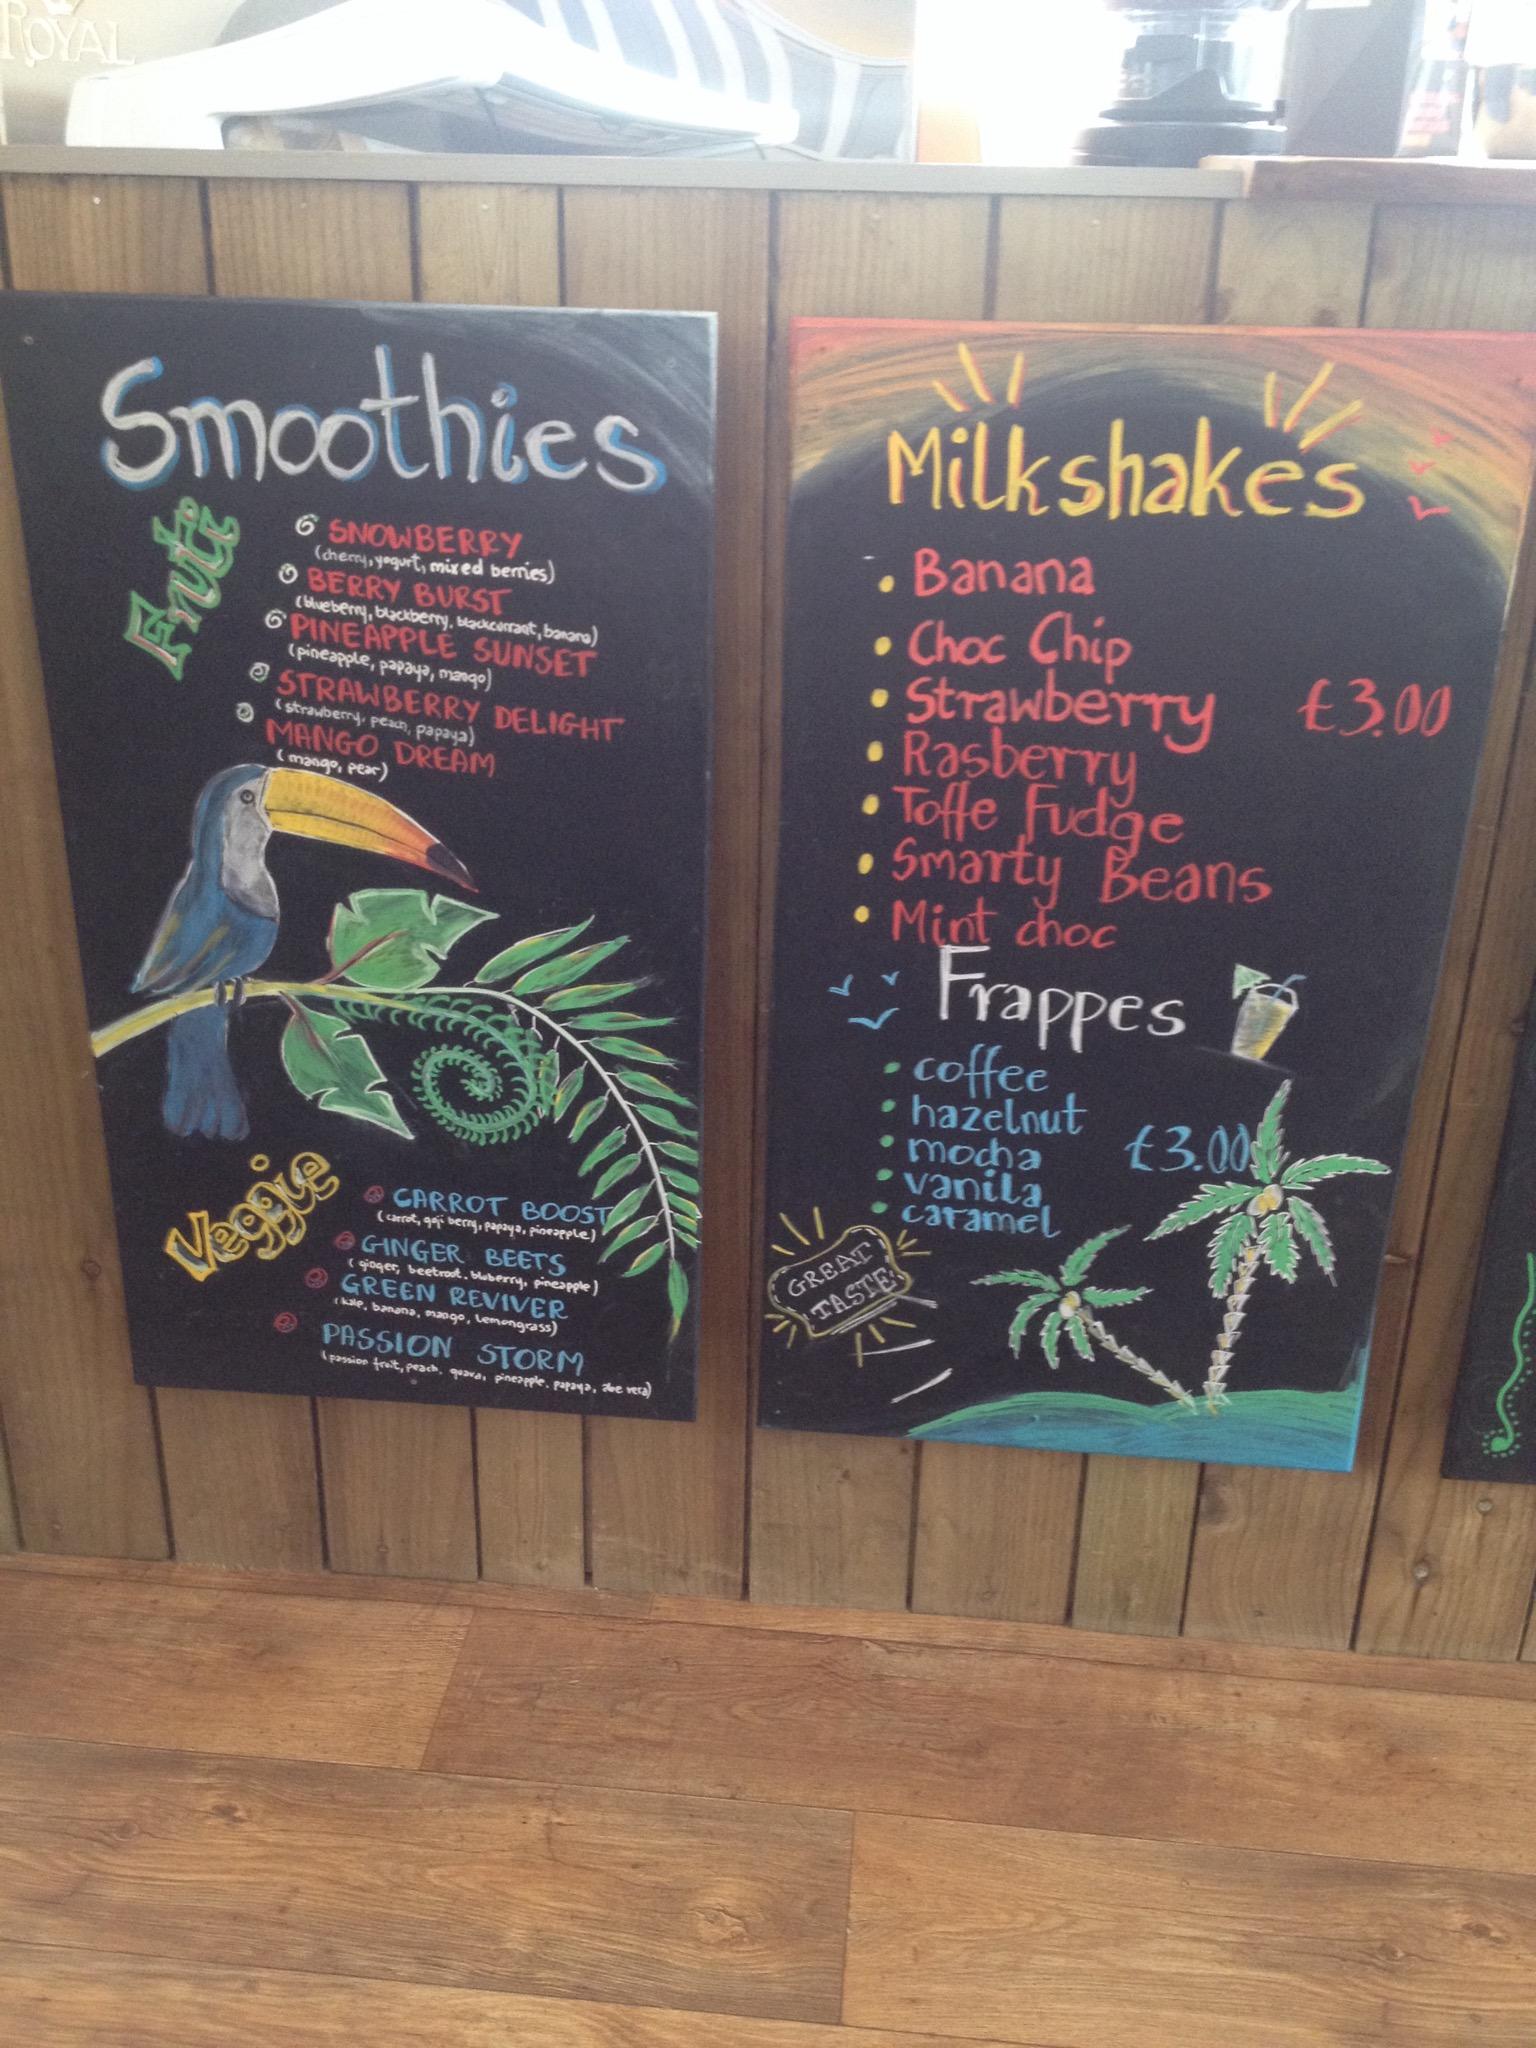 ROYAL
Smoothies
Fruti
SNOWBERRY
(cherry, yogurt, mixed berries)
BERRY BURST
(blueberry, blackberry, blackcurrant, banana)
PINEAPPLE SUNSET
(pineapple, papaya, mango)
STRAWBERRY DELIGHT
(strawberry, peach, papaya)
MANGO DREAM
(mango, pear)
Veggie
CARROT BOOST
(carrot, goji berry, papaya, pineapple)
GINGER BEETS
(ginger, beetroot, bluberry, pineapple)
GREEN REVIVER
(kale, banana, mango, lemongrass)
PASSION STORM
(passion fruit, peach, guava, pineapple, papaya, aloe vera)
Milkshakes
Banana
Choc Chip
Strawberry £3.00
Rasberry
Toffe Fudge
Smarty Beans
Mint choc
Frappes
coffee
hazelnut
mocha £3.00
vanila
caramel
GREAT
TASTE